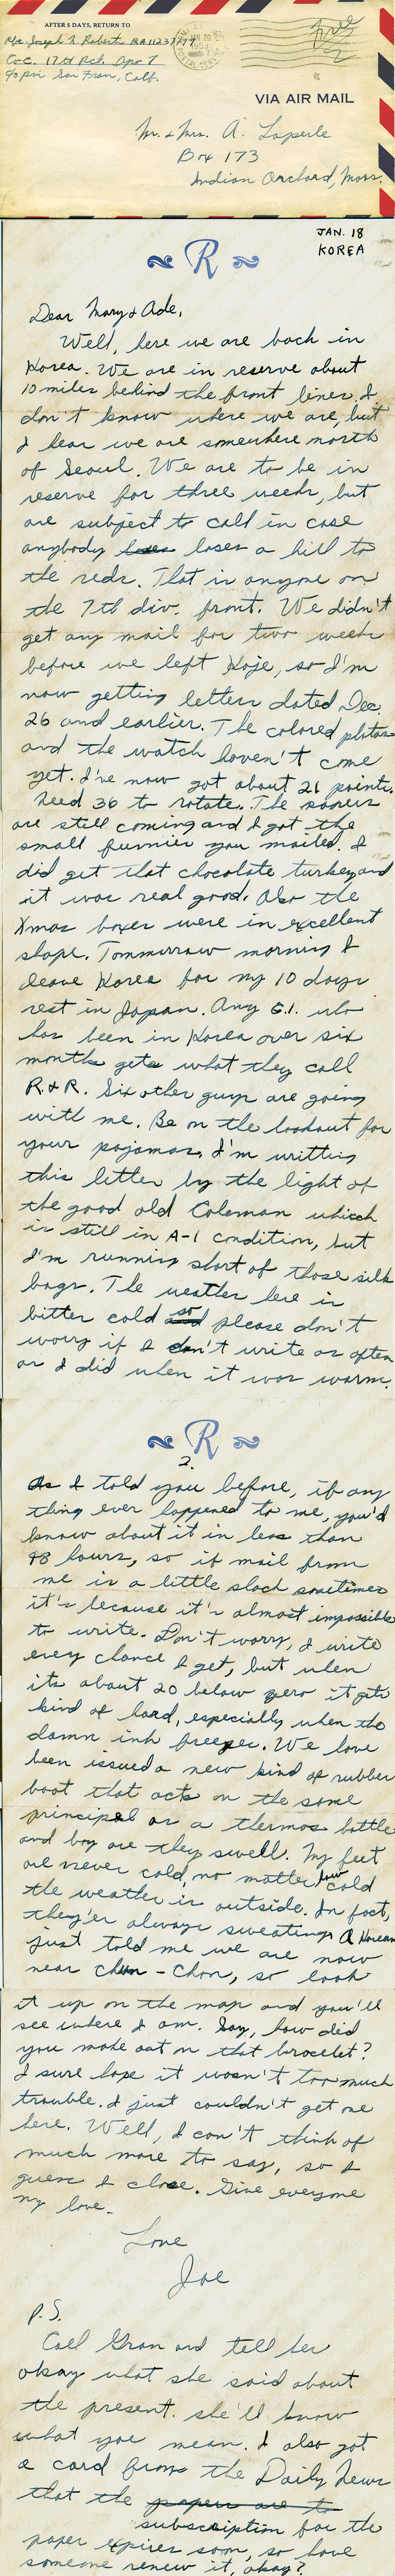 AFTER 5 DAYS, RETURN TO
Pfc. Joseph R. Robert RA11237777
Co C. 17th Rct. Apo 7
c/o pm San Fran, Calf.
VIA AIR MAIL
Mr. & Mrs. A. Laperle
Box 173
Indian Orchard, Mass.
JAN. 18
KOREA
R
Dear Mary & Ade,
Well, here we are back in
Korea. We are in reserve about
10 miles behind the front lines. I
don't know where we are, but
I hear we are somewhere north
of Seoul. We are to be in
reserve for three weeks, but
are subject to call in case
anybody loses a hill to
the reds. That is anyone on
the 7th div. front. We didn't
get any mail for two weeks
before we left Koje, so I'm
now getting letters dated Dec.
26 and earlier. The colored photos
and the watch haven't come
yet. I've now got about 21 points.
Need 36 to rotate. The papers
are still coming and I got the
small funnies you mailed. I
did get that chocolate turkey and
it was real good. Also the
Xmas boxes were in excellent
shape. Tommurrow morning I
leave Korea for my 10 days
rest in Japan. Any G.I. who
has been in Korea over six
months gets what they call
R. & R. Six other guys are going
with me. Be on the lookout for
your pajamas. I'm writting
this letter by the light of
the good old Coleman which
is still in A-1 condition, but
I'm running short of those silk
bags. The weather here is
bitter cold so please don't
worry if I don't write as often
as I did when it was warm.
R
2.
As I told you before, if any
thing ever happened to me, you'd
know about it in less than
48 hours, so if mail from
me is a little slack sometimes
it's because it's almost impossible
to write. Don't worry, I write
every chance I get, but when
its about 20 below zero it gets
kind of hard, especially when the
damn ink freezes. We have
been issued a new kind of rubber
boot that acts on the same
principal as a thermos bottle
and boy are they swell. My feet
are never cold, no matter how cold
the weather is outside. In fact,
they'er always sweating. A Korean
just told me we are now
near Chun-Chon, so look
it up on the map and you'll
see where I am. Say, how did
you make out on that bracelet?
I sure hope it wasn't too much
trouble. I just couldn't get one
here. Well, I can't think of
much more to say, so I
guess I close. Give everyone
my love.
Love
Joe
P.S.
Call Gram and tell her
okay what she said about
the present. she'll know
what you mean. I also got
a card from the Daily News
that the papers are to
subscription for the
paper expires soon, so have
someone renew it, okay?